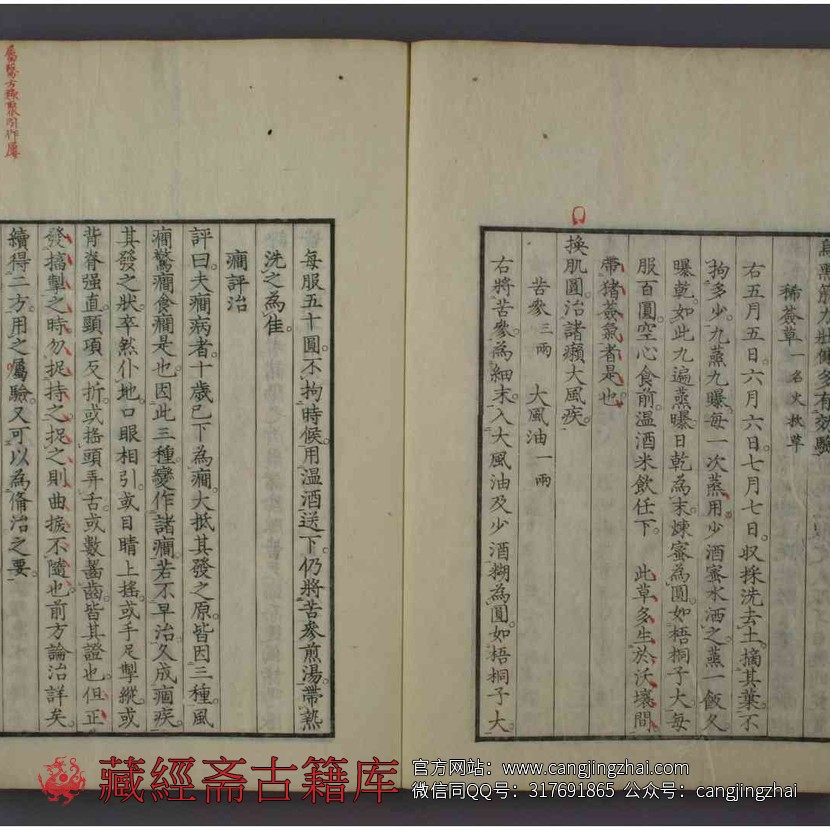 烏黑筋力壯健多有効驗
稀薟草一名火杴草
右五月五日六月六日七月七日收採洗去土摘其葉不
拘多少九蒸九曝每一次蒸用少酒蜜水洒之蒸一飯久
曝乾如此九遍蒸曝日乾為末煉蜜為圓如梧桐子大每
服百圓空心食前温酒米飲任下 此草多生於沃壤間
帶猪薟氣者是也
換肌圓治諸癩大風疾
苦參三兩 大風油一兩
右將苦參為細末入大風油及少酒糊為圓如梧桐子大
每服五十圓不拘時候用温酒送下仍將苦參煎湯帶熱
洗之為佳
癎評治
評曰夫癎病者十歲已下為癎大抵其發之原皆因三種風
癎驚癎食癎是也因此三種變作諸癎若不早治久成痼疾
其發之狀卒然仆地口眼相引或目睛上搖或手足掣縱或
背脊强直頸項反折或搖頭弄舌或數齧齒皆其證也但正
發搐掣之時勿捉持之捉之則曲捩不隨也前方論治詳矣
續得二方用之屬驗又可以為脩治之要
屬醫方類聚引作屢
藏經斋古籍库
官方网站：www.cangjingzhai.com
微信同QQ号：317691865 公众号：cangjingzhai